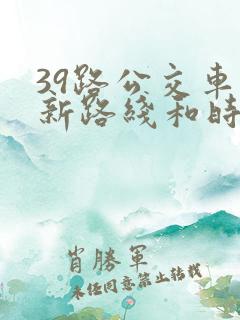 39路公交車
新路綫和時
肖勝軍
未经同意禁止转载